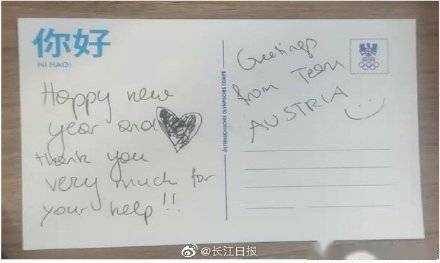 你好
NI HAO!
Happy new
year and
thank you
very much for
your help!!
Greetings
from Team
AUSTRIA
ÖSTERREICHISCHES OLYMPISCHES COMITÉ
@长江日报